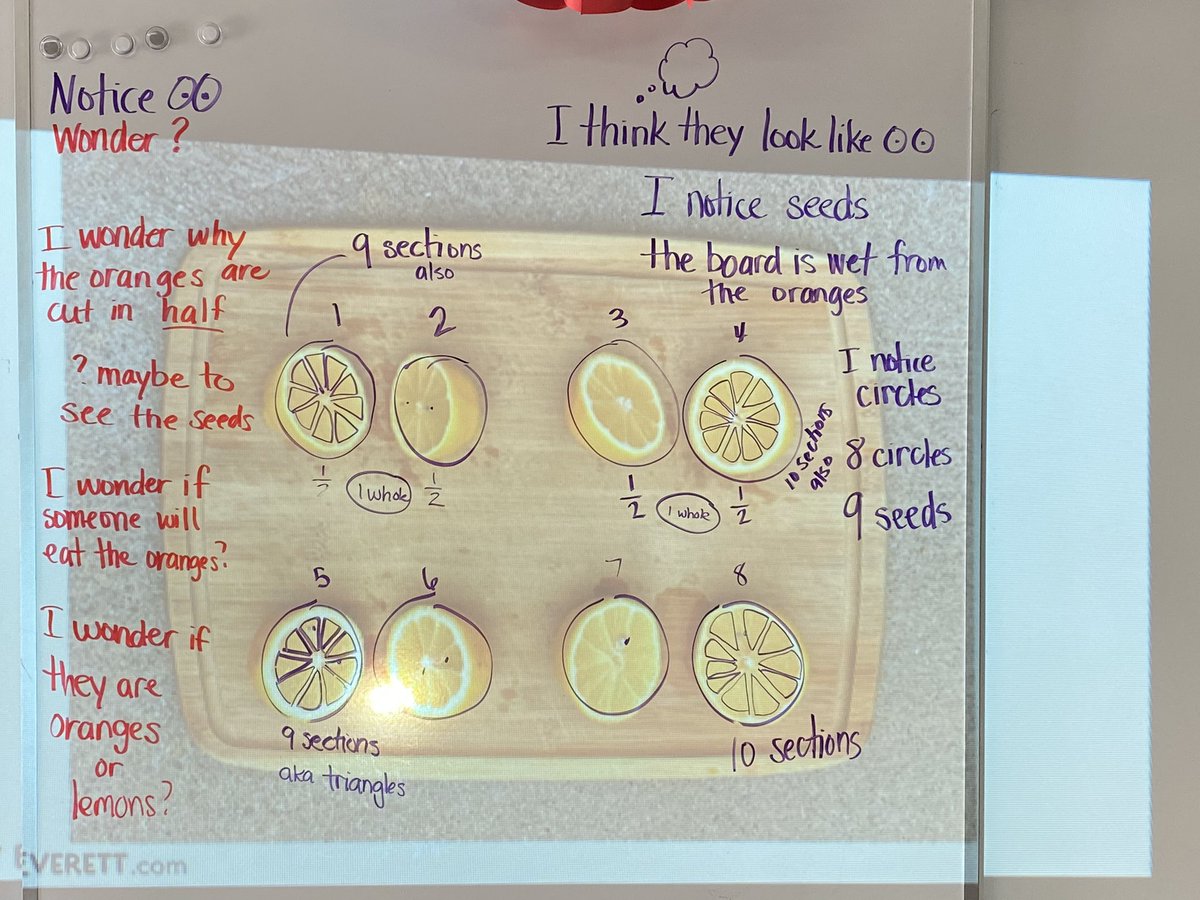 Notice
Wonder ?
I wonder why
the oranges are
cut in half
? maybe to
see the seeds
I wonder if
someone will
eat the oranges?
I wonder if
they are
oranges
or
lemons?
I think they look like
I notice seeds
the board is wet from
the oranges
I notice
circles
8 circles
9 seeds
9 sections
also
1
2
3
4
10 sections
also
1/2
1 whole
1/2
1/2
1 whole
1/2
5
6
7
8
9 sections
aka triangles
10 sections
EVERETT.com